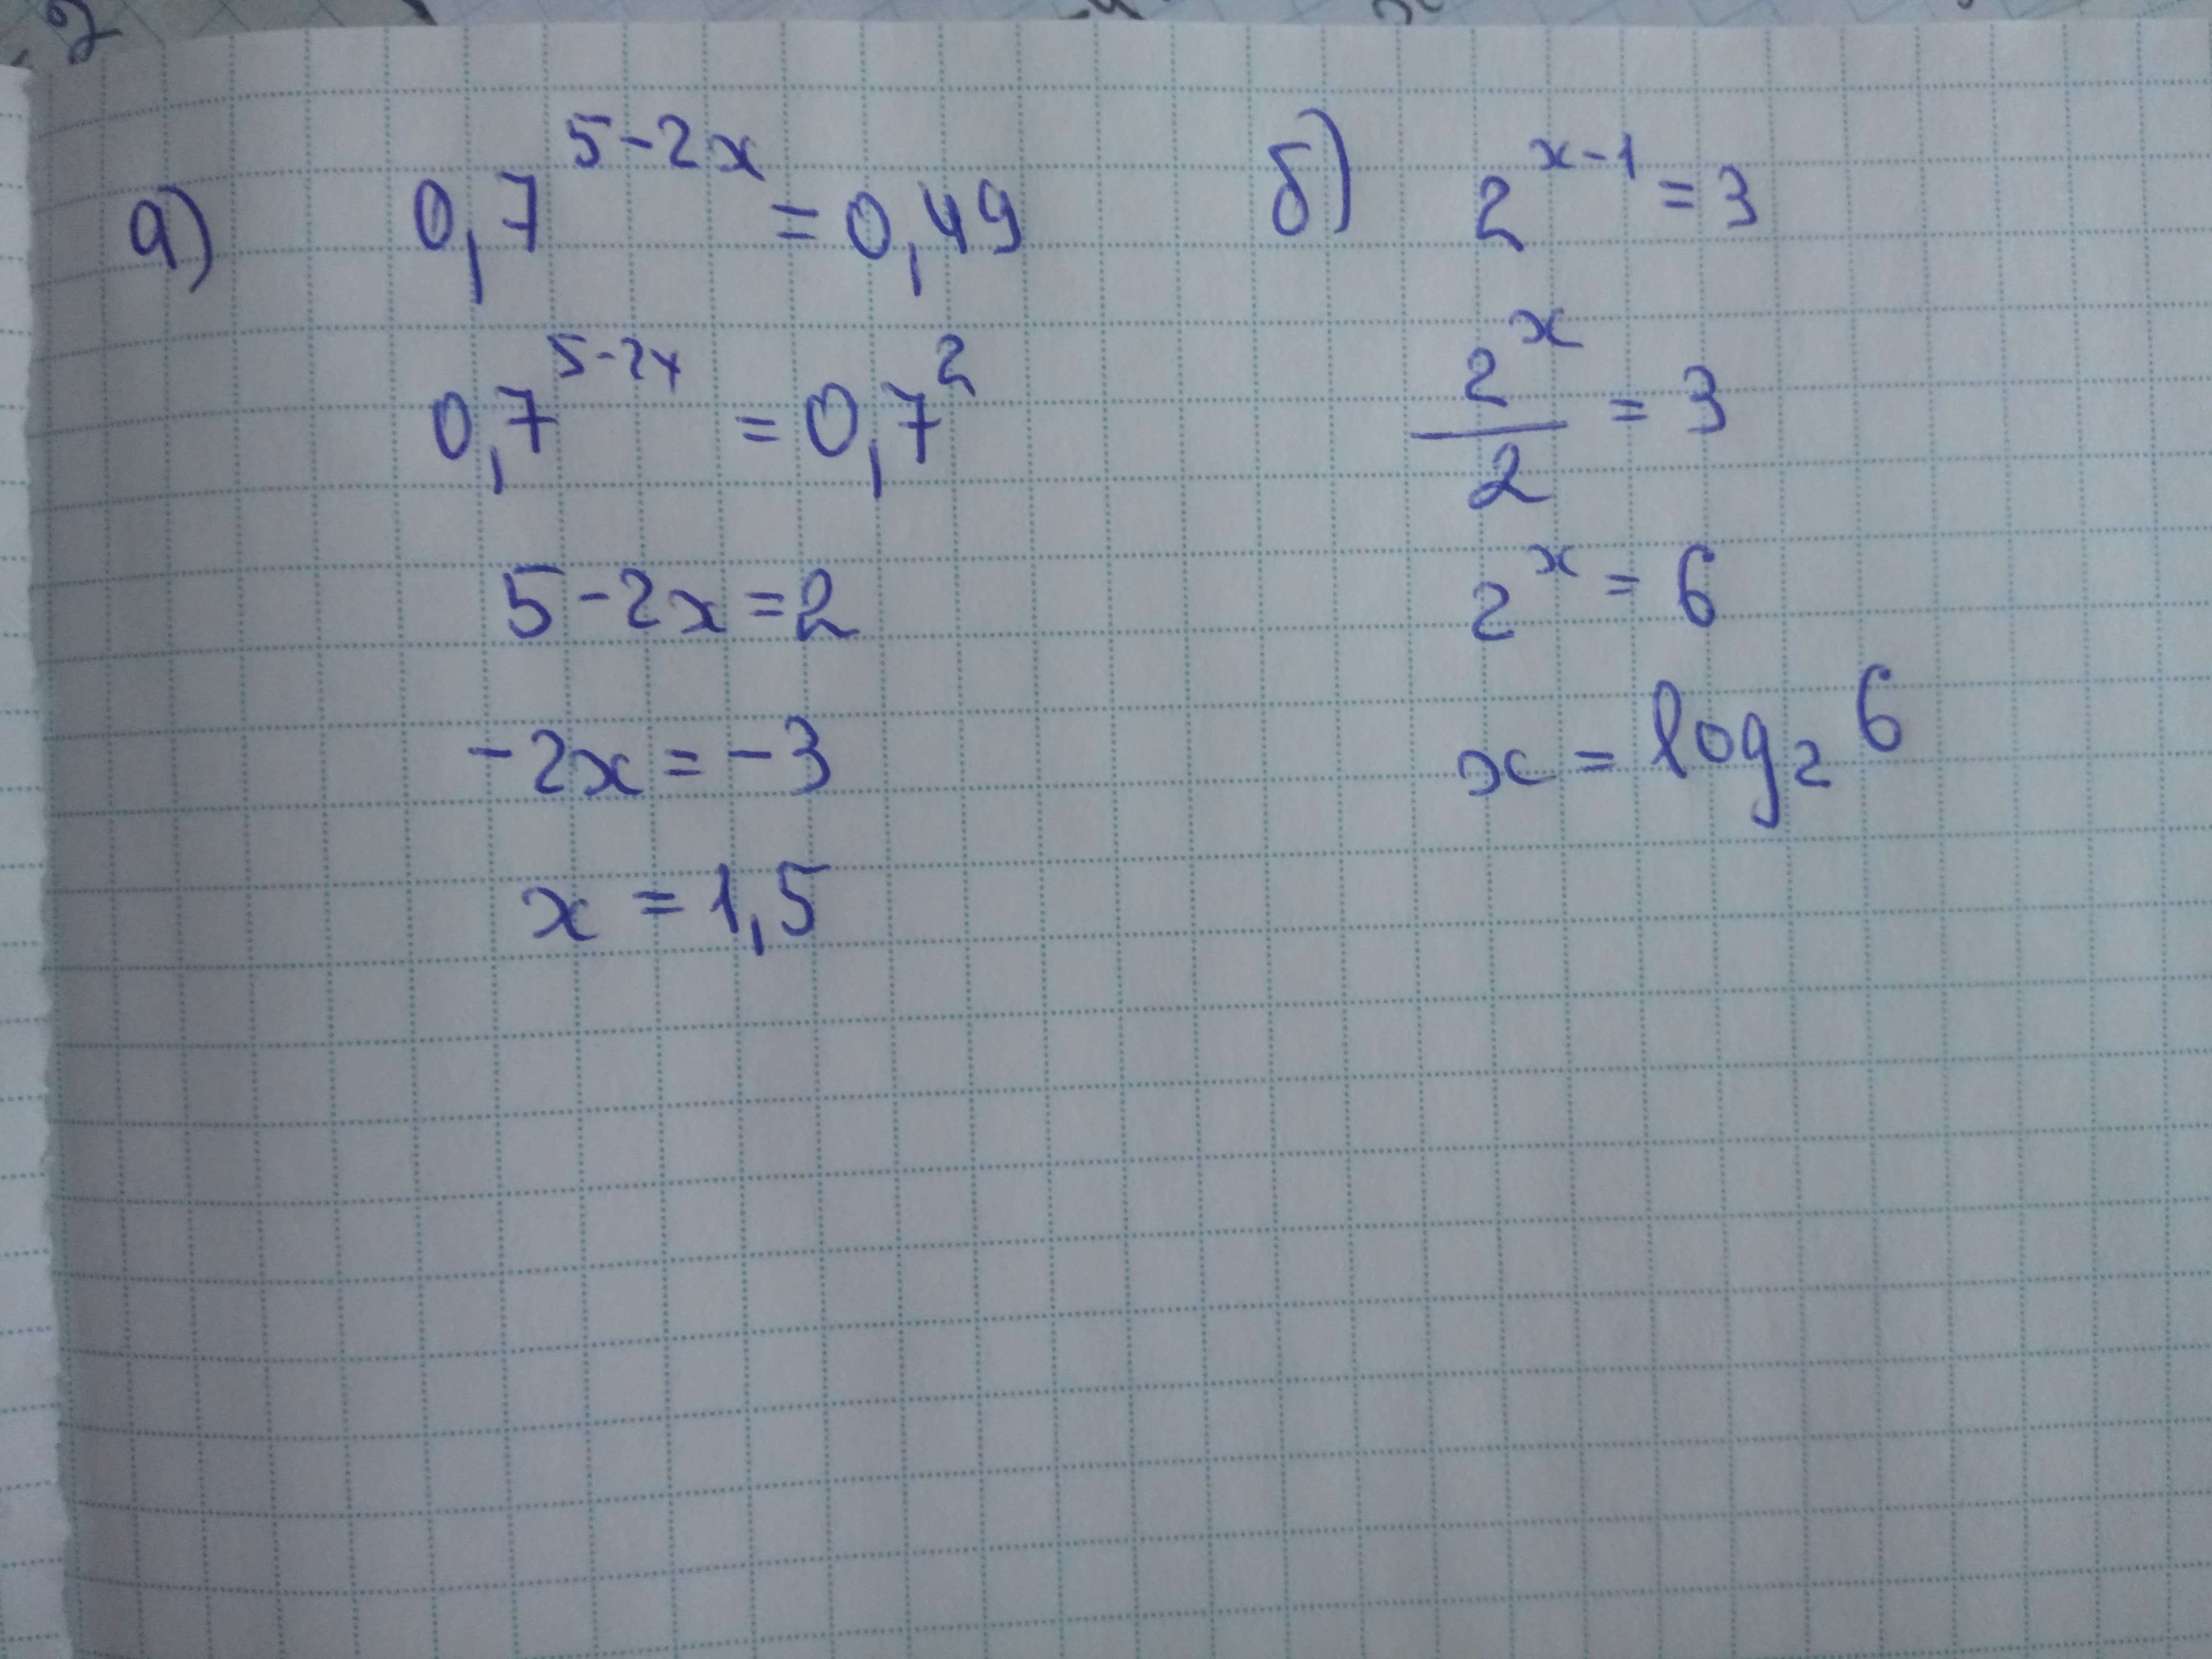 а) 0,7^{5-2x} = 0,49
0,7^{5-2x} = 0,7^2
5-2x=2
-2x=-3
x = 1,5
б) 2^{x-1} = 3
\frac{2^x}{2} = 3
2^x = 6
x = log_2 6